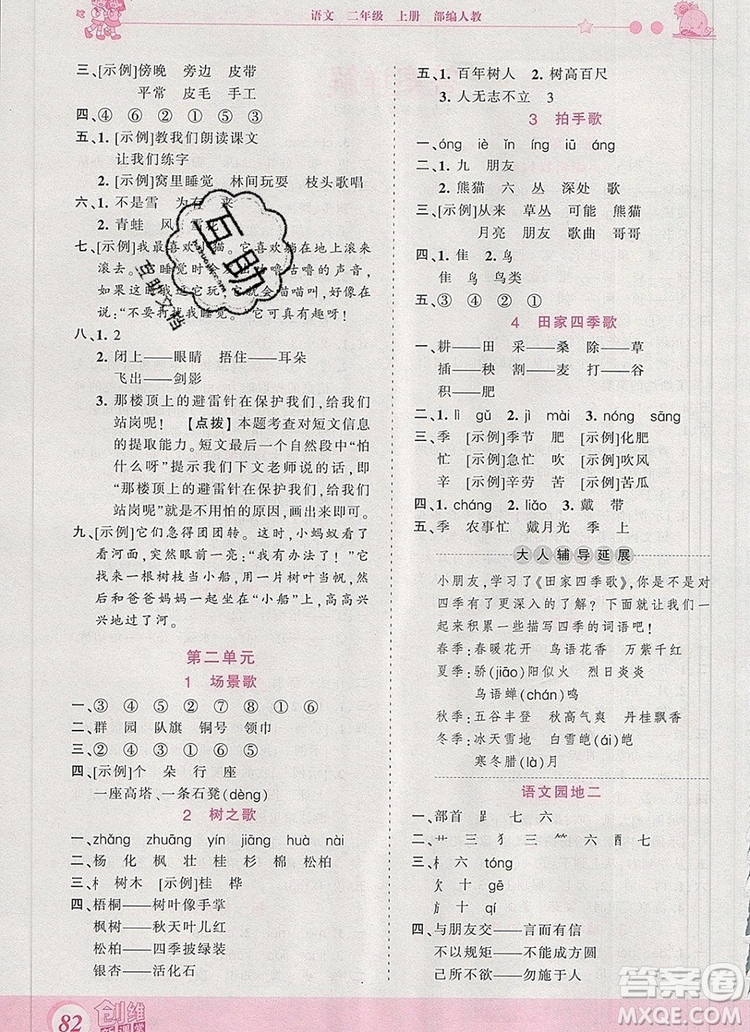 语文 二年级 上册 部编人教
三、[示例]傍晚 旁边 皮带
平常 皮毛 手工
四、④ ⑥ ② ① ③ ⑤
五、1. [示例]教我们朗读课文
让我们练字
2. [示例]窝里睡觉 林间玩耍 枝头歌唱
六、1. 不是雪 为有 来
2. 青蛙 风 雪花
七、[示例]我最喜欢小猫。它喜欢在地上滚来
滚去。睡觉时会发出咕噜咕噜的声音,
如果你把它吵醒,它就会喵喵叫,好像在
说:“不要再打扰我睡觉了。”
八、1. 2
2. 闭上——眼睛 捂住——耳朵
飞出——剑影
3. 那楼顶上的避雷针在保护我们,给我们
站岗呢! 【点拨】本题考查对短文信息
的提取能力。短文最后一个自然段中“怕
什么呀”提示我们下文老师说的话,即
那楼顶上的避雷针在保护我们,给我们
站岗呢! 画出来即可。
九、[示例]它们急得团团转。小蚂蚁看了
看河面,突然眼前一亮:“我有办法了!”它
找来一根树枝当小船,“我们有小船了!”然
后和爸爸妈妈一起坐在“小船”上,高高兴
兴地过了河。
第二单元
1 场景歌
一、③ ④ ⑤ ② ⑦ ⑧ ① ⑥
二、群 园 队旗 铜号 领巾
三、② ⑤ ④ ③ ① ⑥
四、[示例]个 朵 行 座
一座高塔、一条石凳(dèng)
2 树之歌
一、zhǎng zhuāng yín jiāng huà nài
二、杨 化 枫 壮 桂 杉 棉 松柏
三、木 树木 [示例]桂 桦
四、梧桐——树叶像手掌
枫树——秋天叶儿红
松柏——四季披绿装
银杏——活化石
82
创维
五、1. 百年树人 2. 树高百尺
3. 人无志不立 3
3 拍手歌
一、óng iè ǐn íng iú áng
二、1. 九 朋友
2. 熊猫 六 丛 深处 歌
三、[示例]从来 草丛 可能 熊猫
月亮 朋友 歌曲 哥哥
四、1. 隹 2. 鸟
隹 鸟 鸟类
五、③ ④ ② ①
4 田家四季歌
一、耕——田 采——桑 除——草
插——秧 割——麦 打——谷
积——肥
二、1. lì gǔ 2. jì mài 3. nóng sāng
三、季 [示例]季节 肥 [示例]化肥
忙 [示例]急忙 吹 [示例]吹风
辛 [示例]辛劳 苦 [示例]苦瓜
四、1. cháng 2. liǎo 3. 戴 带
五、季 农事忙 戴月光 季 上
大人辅导延展
小朋友,学习了《田家四季歌》,你是不是对
四季有了更多的了解呢?下面就让我们一
起来积累一些描写四季的词语吧!
春季:春暖花开 鸟语花香 万紫千红
夏季:骄(jiāo)阳似火 烈日炎炎
鸟语蝉(chán)鸣
秋季:五谷丰登 秋高气爽 丹桂飘香
冬季:冰天雪地 白雪皑(ái)皑
寒冬腊(là)月
语文园地二
一、部首 𧾷 七 六
二、艹 三 犭 三 ⺮ 六 酉 七
三、木 六 tóng
饣 十 gē
亻 十 qí
四、与朋友交——言而有信
不以规矩——不能成方圆
己所不欲——勿施于人
互助
互助文档
答案圈
MXQE.COM